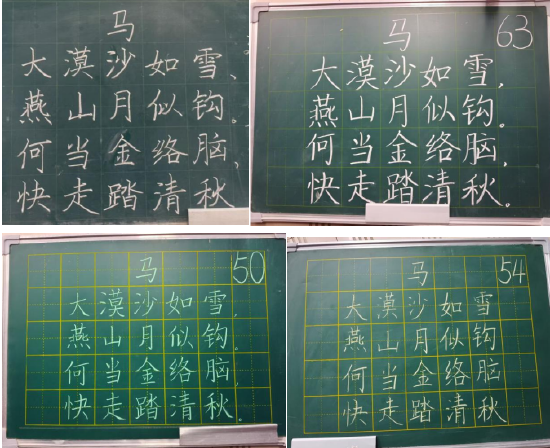 马
大漠沙如雪、
燕山月似钩。
何当金络脑,
快走踏清秋
63
马
大漠沙如雪,
燕山月似钩。
何当金络脑,
快走踏清秋。
马
50
大漠沙如雪,
燕山月似钩。
何当金络脑,
快走踏清秋。
马
54
大漠沙如雪
燕山月似钩
何当金络脑
快走踏清秋